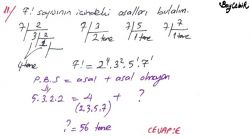 Boylelik
11/ 7! sayısının içindeki asalları bulalım.
7 | 2 7 | 3 7 | 5 7 | 7
3 | 2 2 tane 1 tane 1 tane
1
4 tane 7! = 2⁴.3².5¹.7¹
P.B.S = asal + asal olmayan
5.3.2.2 = 4 + ?
(2,3,5,7)
? = 56 tane
CEVAP:E